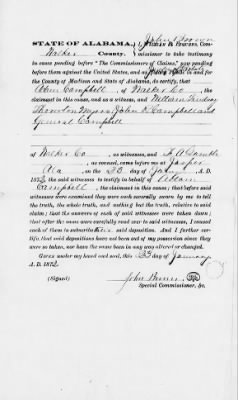 John Brown
STATE OF ALABAMA, I, William H. Edwards, Com-
Walker County. missioner to take testimony
in cases pending before "The Commissioners of Claims," now
pending before them against the United States, and residing in and for
the County of Madison and State of Alabama, do certify, that
Campbell, of Walker Co, the
claimant in this cause, and as a witness, and William
Thornton Myers John Campbell and
General Campbell
of Walker Co, as witnesses, and F A Gamble
as counsel, came before me at Jasper
Ala on the 23 day of Jany A. D.
1872, the said witnesses to testify in behalf of
Campbell, the claimant in this cause; that before said
witnesses were examined they were each severally sworn by me to tell
the truth, the whole truth, and nothing but the truth, relative to said
claim; that the answers of each of said witnesses were taken down;
that after the same were carefully read over to said witnesses, I caused
each of them to subscribe their said deposition. And I further certi-
fy, that said depositions have not been out of my possession since they
were so taken, nor have the same been in any way altered or changed.
Given under my hand and seal, this 23 day of January
A. D. 1872.
(Signed) John Brown
Special Commissioner, &c.